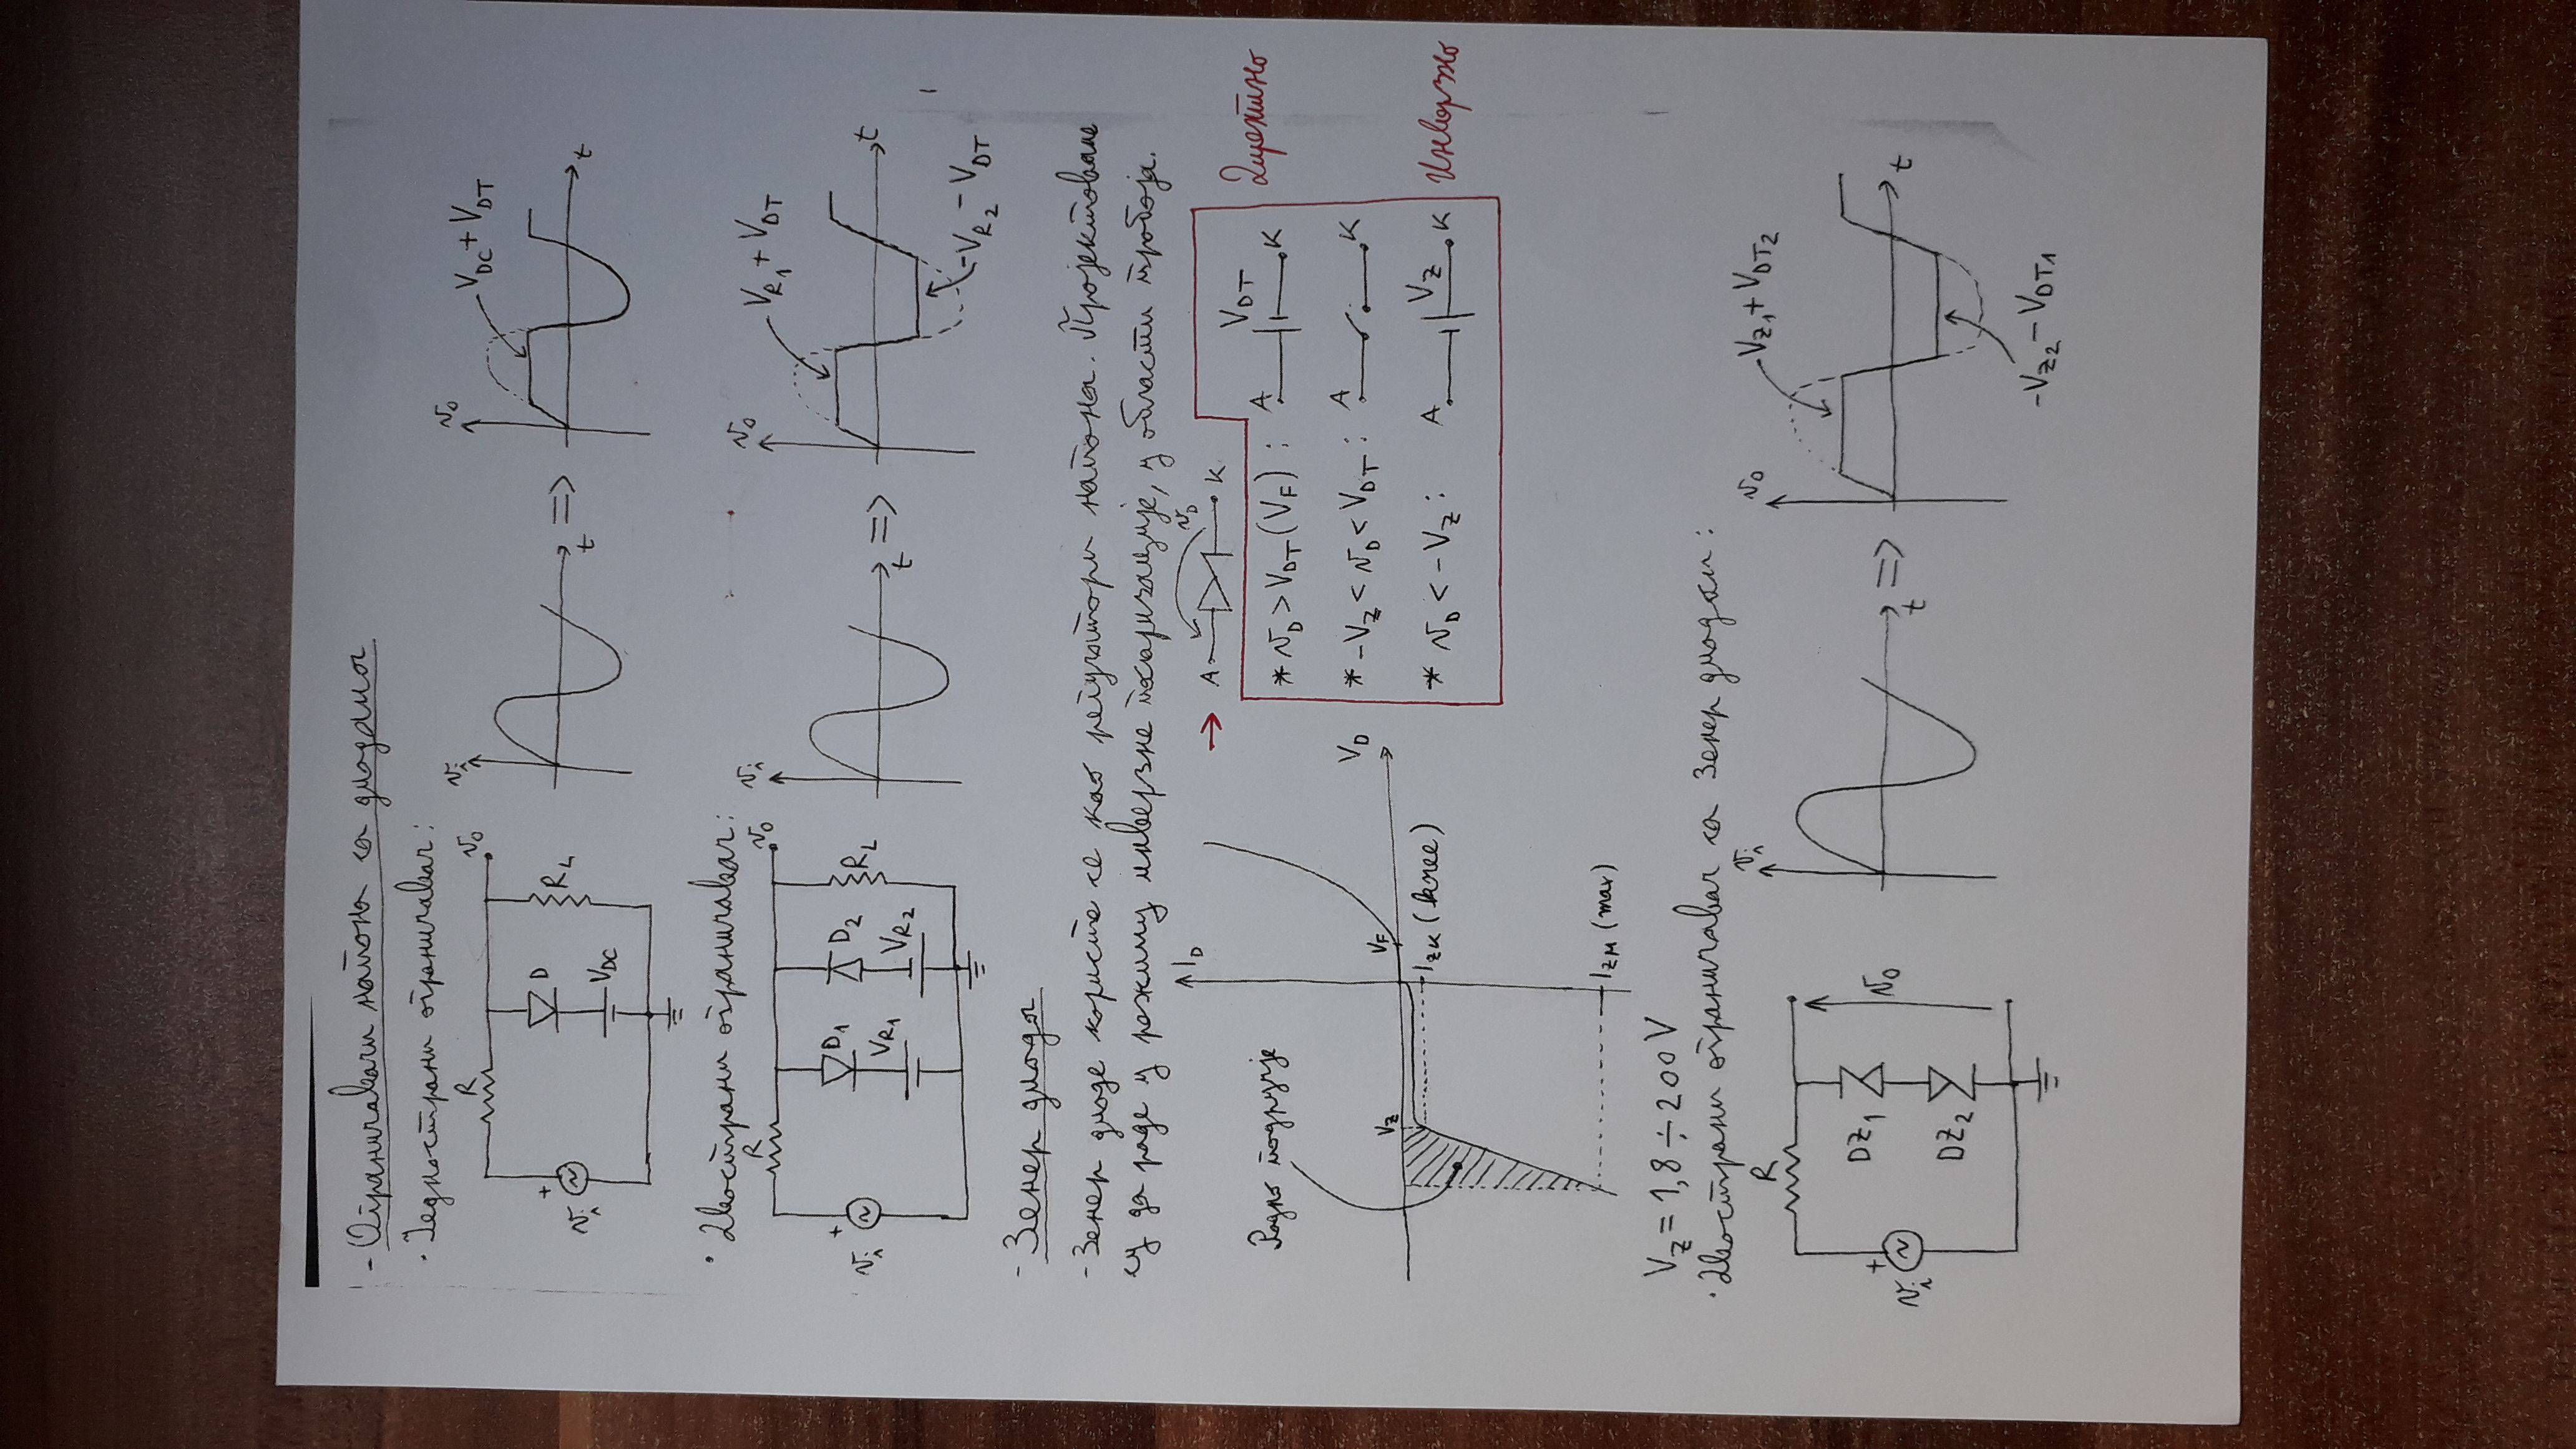 - Ограничавачи напона са диодама
· Једнострани ограничавач:
R
v₀
D
V_DC
R_L
+
v_i
v_i
t
=>
v₀
V_DC + V_DT
t
· Двострани ограничавач:
R
v₀
D₁
V_R1
D₂
V_R2
R_L
+
v_i
v_i
t
=>
v₀
V_R1 + V_DT
t
-V_R2 - V_DT
- Зенер диода
- Зенер диоде користе се као регулатори напона. Пројектоване
су да раде у режиму инверзне поларизације, у области пробоја.
I_D
Радно подручје
V_Z
V_F
V_D
I_ZK (knee)
I_ZM (max)
→ A v_D K
* v_D > V_DT (V_F) : A V_DT K Директно
* -V_Z < v_D < V_DT : A K
* v_D < -V_Z : A V_Z K Инверзно
V_Z = 1,8 ÷ 200 V
· Двострани ограничавач са Зенер диодом:
R
+
v_i
DZ₁
DZ₂
v₀
v_i
t
=>
v₀
V_Z1 + V_DT2
t
-V_Z2 - V_DT1